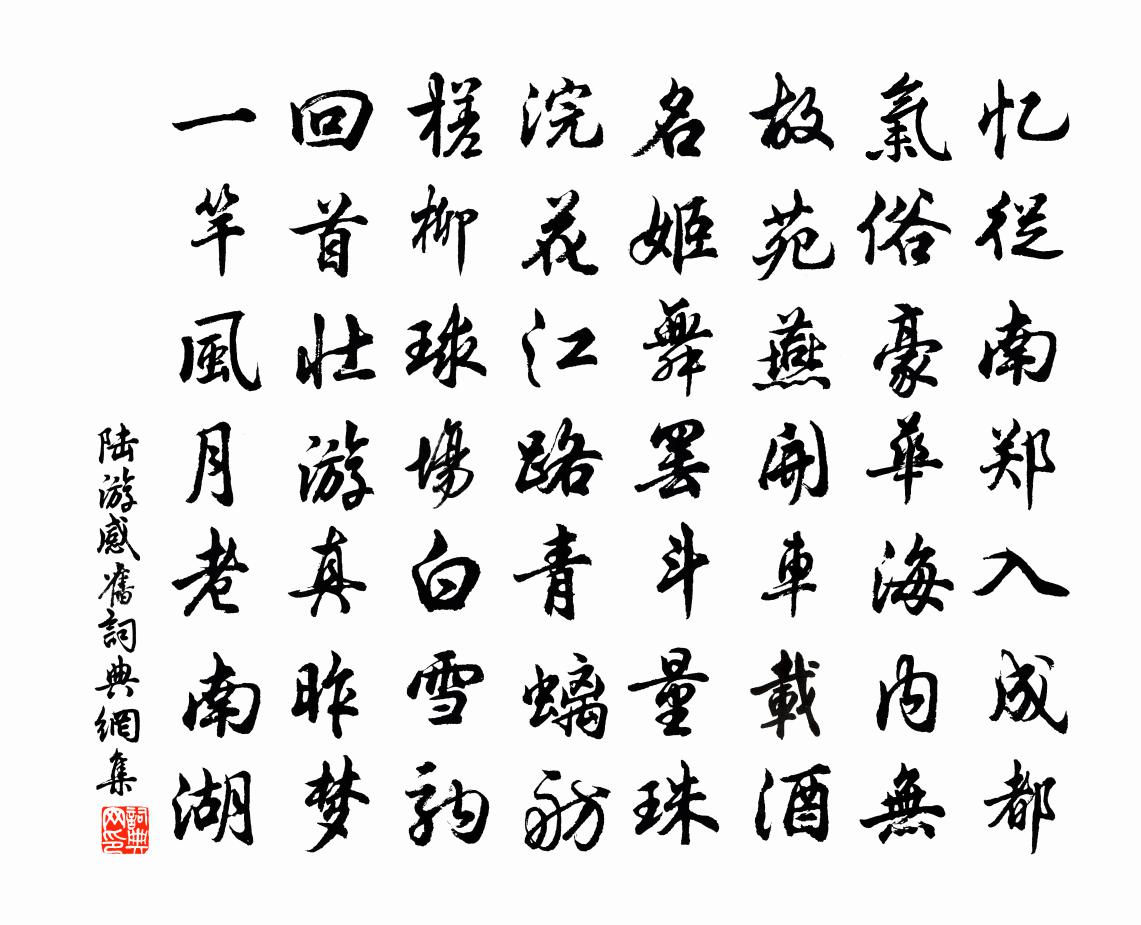 忆従南郑入成都
氣俗豪華海内無
故苑燕開車載酒
名姬舞罢斗量珠
浣花江路青螭舫
槎柳球場白雪駒
回首壮游真昨梦
一竿風月老南湖
陆游感舊詞典網集
詞典网印